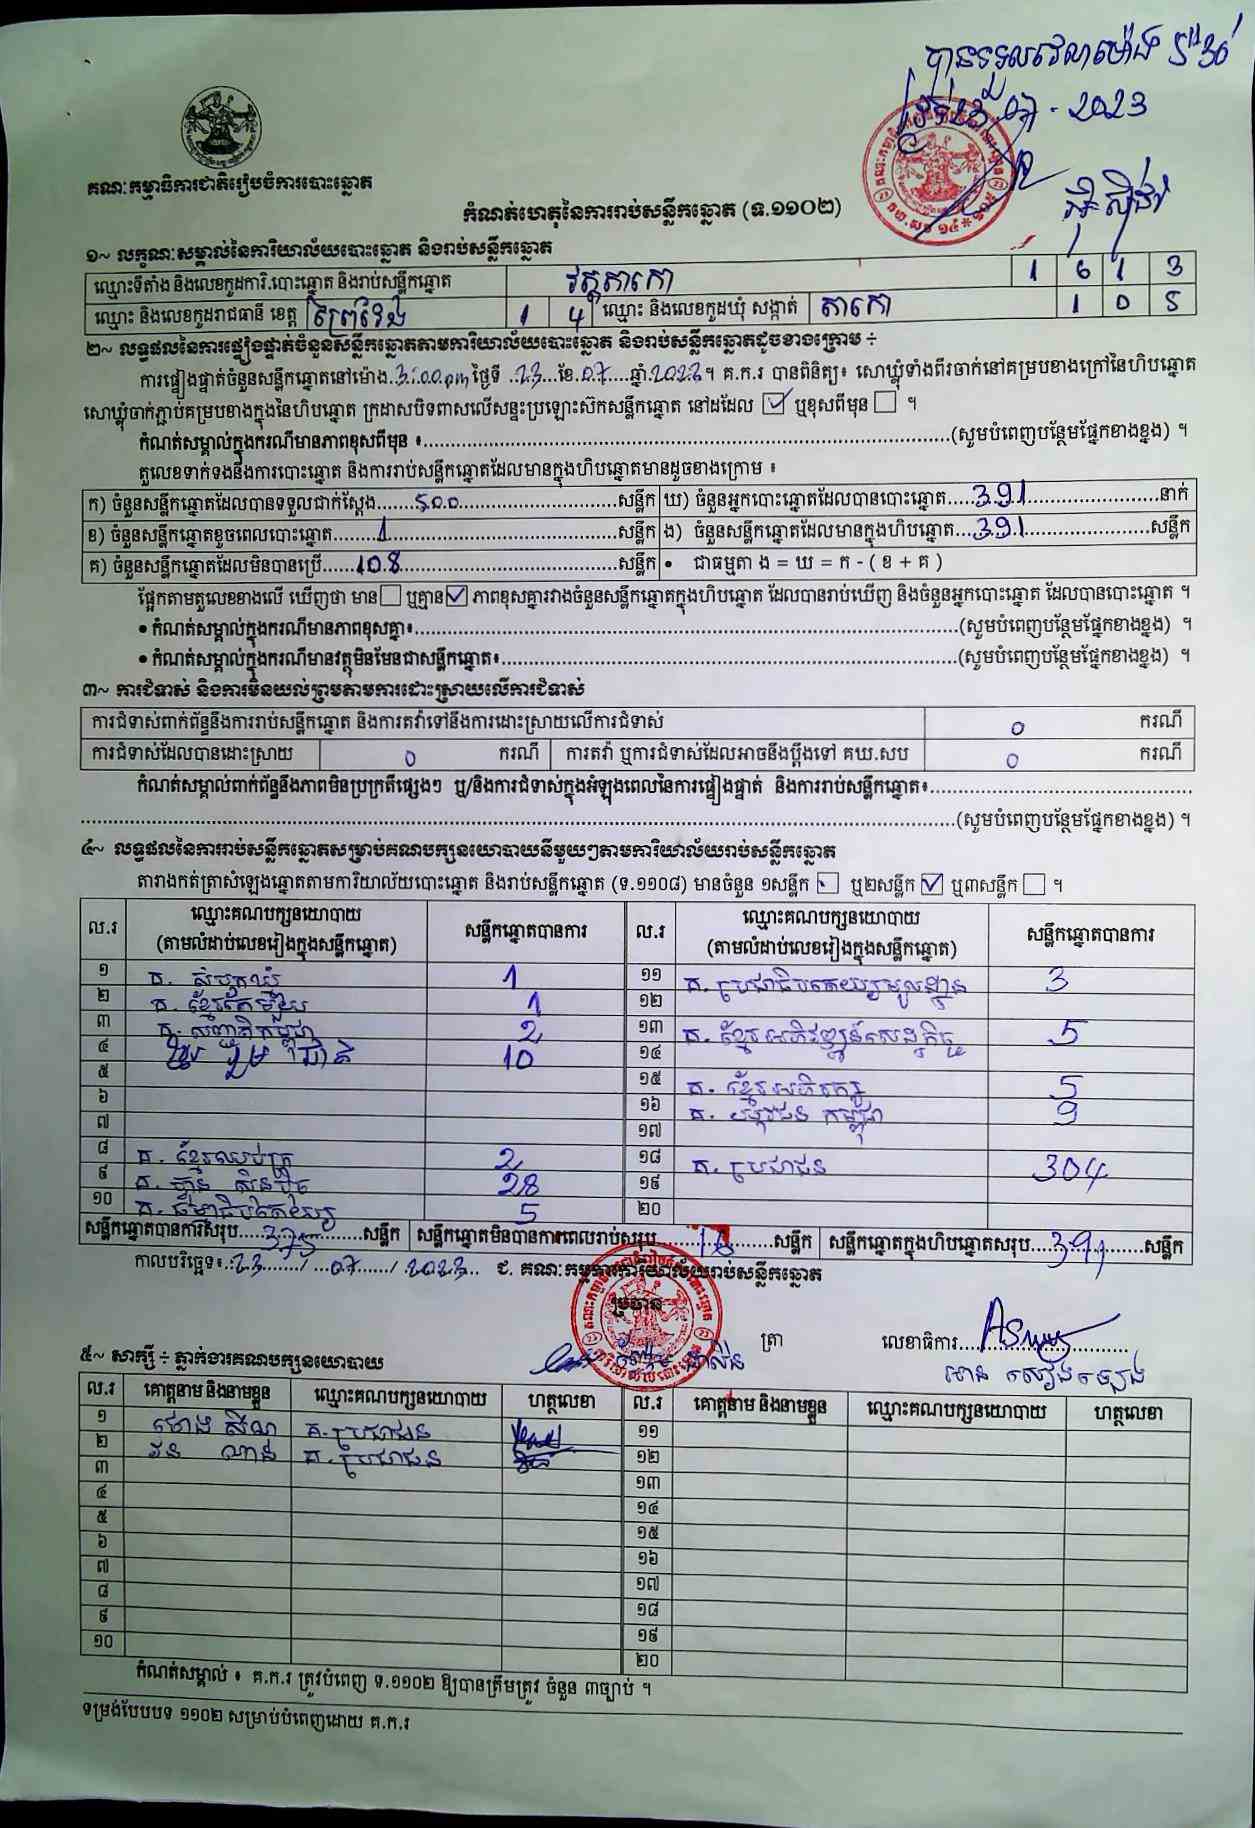 បានទទួលវេលាម៉ោង 5 30
07 - 2023
គណៈកម្មាធិការជាតិរៀបចំការបោះឆ្នោត
កំណត់ហេតុនៃការរាប់សន្លឹកឆ្នោត (ទ.១១០២)
១~ លក្ខណៈសម្គាល់នៃការិយាល័យបោះឆ្នោត និងរាប់សន្លឹកឆ្នោត
ឈ្មោះទីតាំង និងលេខកូដការិ.បោះឆ្នោត និងរាប់សន្លឹកឆ្នោត វត្តតាកោ 1 6 1 3
ឈ្មោះ និងលេខកូដរាជធានី ខេត្ត ព្រៃវែង 1 4 ឈ្មោះ និងលេខកូដឃុំ សង្កាត់ តាកោ 1 0 5
២~ លទ្ធផលនៃការផ្ទៀងផ្ទាត់ចំនួនសន្លឹកឆ្នោតតាមការិយាល័យបោះឆ្នោត និងរាប់សន្លឹកឆ្នោតដូចខាងក្រោម ÷
ការផ្ទៀងផ្ទាត់ចំនួនសន្លឹកឆ្នោតនៅម៉ោង 3:00pm ថ្ងៃទី 23 ខែ 07 ឆ្នាំ 2023 ។ គ.ក.រ បានពិនិត្យ៖ សោឃ្លុំទាំងពីរចាក់នៅគម្របខាងក្រៅនៃហិបឆ្នោត
សោឃ្លុំចាក់ភ្ជាប់គម្របខាងក្នុងនៃហិបឆ្នោត ក្រដាសបិទពាសលើសន្ទះប្រឡោះស៊កសន្លឹកឆ្នោត នៅដដែល ☑ ឬខុសពីមុន ☐ ។
កំណត់សម្គាល់ក្នុងករណីមានភាពខុសពីមុន ៖ (សូមបំពេញបន្ថែមផ្នែកខាងខ្នង) ។
តួលេខទាក់ទងនឹងការបោះឆ្នោត និងការរាប់សន្លឹកឆ្នោតដែលមានក្នុងហិបឆ្នោតមានដូចខាងក្រោម ៖
ក) ចំនួនសន្លឹកឆ្នោតដែលបានទទួលជាក់ស្តែង 500 សន្លឹក ឃ) ចំនួនអ្នកបោះឆ្នោតដែលបានបោះឆ្នោត 391 នាក់
ខ) ចំនួនសន្លឹកឆ្នោតខូចពេលបោះឆ្នោត 1 សន្លឹក ង) ចំនួនសន្លឹកឆ្នោតដែលមានក្នុងហិបឆ្នោត 391 សន្លឹក
គ) ចំនួនសន្លឹកឆ្នោតដែលមិនបានប្រើ 108 សន្លឹក • ជាធម្មតា ង = ឃ = ក - ( ខ + គ )
ផ្អែកតាមតួលេខខាងលើ ឃើញថា មាន ☐ ឬគ្មាន ☑ ភាពខុសគ្នារវាងចំនួនសន្លឹកឆ្នោតក្នុងហិបឆ្នោត ដែលបានរាប់ឃើញ និងចំនួនអ្នកបោះឆ្នោត ដែលបានបោះឆ្នោត ។
• កំណត់សម្គាល់ក្នុងករណីមានភាពខុសគ្នា៖ (សូមបំពេញបន្ថែមផ្នែកខាងខ្នង) ។
• កំណត់សម្គាល់ក្នុងករណីមានវត្ថុមិនមែនជាសន្លឹកឆ្នោត៖ (សូមបំពេញបន្ថែមផ្នែកខាងខ្នង) ។
៣~ ការជំទាស់ និងការមិនយល់ព្រមតាមការដោះស្រាយលើការជំទាស់
ការជំទាស់ពាក់ព័ន្ធនឹងការរាប់សន្លឹកឆ្នោត និងការតវ៉ាទៅនឹងការដោះស្រាយលើការជំទាស់ 0 ករណី
ការជំទាស់ដែលបានដោះស្រាយ 0 ករណី ការតវ៉ា ឬការជំទាស់ដែលអាចនឹងប្តឹងទៅ គឃ.សប 0 ករណី
កំណត់សម្គាល់ពាក់ព័ន្ធនឹងភាពមិនប្រក្រតីផ្សេងៗ ឬ/និងការជំទាស់ក្នុងអំឡុងពេលនៃការផ្ទៀងផ្ទាត់ និងការរាប់សន្លឹកឆ្នោត៖
(សូមបំពេញបន្ថែមផ្នែកខាងខ្នង) ។
៤~ លទ្ធផលនៃការរាប់សន្លឹកឆ្នោតសម្រាប់គណបក្សនយោបាយនីមួយៗតាមការិយាល័យរាប់សន្លឹកឆ្នោត
តារាងកត់ត្រាសំឡេងឆ្នោតតាមការិយាល័យបោះឆ្នោត និងរាប់សន្លឹកឆ្នោត (ទ.១១០៨) មានចំនួន ១សន្លឹក ☐ ឬ២សន្លឹក ☑ ឬ៣សន្លឹក ☐ ។
ល.រ ឈ្មោះគណបក្សនយោបាយ (តាមលំដាប់លេខរៀងក្នុងសន្លឹកឆ្នោត) សន្លឹកឆ្នោតបានការ ល.រ ឈ្មោះគណបក្សនយោបាយ (តាមលំដាប់លេខរៀងក្នុងសន្លឹកឆ្នោត) សន្លឹកឆ្នោតបានការ
១ គ. សំបុកឃ្មុំ 1 ១១ គ. ប្រជាធិបតេយ្យមូលដ្ឋាន 3
២ គ. ខ្មែរតែមួយ 1 ១២
៣ គ. សញ្ជាតិកម្ពុជា 2 ១៣ គ. ខ្មែរអភិវឌ្ឍន៍សេដ្ឋកិច្ច 5
៤ ខ្មែររួបរួមជាតិ 10 ១៤
៥ ១៥ គ. ខ្មែរអភិរក្ស 5
៦ ១៦ គ. យុវជន កម្ពុជា 9
៧ ១៧
៨ គ. ខ្មែរឈប់ក្រ 2 ១៨ គ. ប្រជាជន 304
៩ គ. ហ្វ៊ុនស៊ិនប៉ិច 28 ១៩
១០ គ. ធម្មាធិបតេយ្យ 5 ២០
សន្លឹកឆ្នោតបានការសរុប 375 សន្លឹក សន្លឹកឆ្នោតមិនបានការពេលរាប់សរុប 16 សន្លឹក សន្លឹកឆ្នោតក្នុងហិបឆ្នោតសរុប 391 សន្លឹក
កាលបរិច្ឆេទ៖ 23 / 07 / 2023 ជ. គណៈកម្មការការិយាល័យរាប់សន្លឹកឆ្នោត
ប្រធាន
ត្រា លេខាធិការ
៥~ សាក្សី ÷ ភ្នាក់ងារគណបក្សនយោបាយ
ល.រ គោត្តនាម និងនាមខ្លួន ឈ្មោះគណបក្សនយោបាយ ហត្ថលេខា ល.រ គោត្តនាម និងនាមខ្លួន ឈ្មោះគណបក្សនយោបាយ ហត្ថលេខា
១ គ. ប្រជាជន ១១
២ គ. ប្រជាជន ១២
៣ ១៣
៤ ១៤
៥ ១៥
៦ ១៦
៧ ១៧
៨ ១៨
៩ ១៩
១០ ២០
កំណត់សម្គាល់ ៖ គ.ក.រ ត្រូវបំពេញ ទ.១១០២ ឱ្យបានត្រឹមត្រូវ ចំនួន ៣ច្បាប់ ។
ទម្រង់បែបបទ ១១០២ សម្រាប់បំពេញដោយ គ.ក.រ